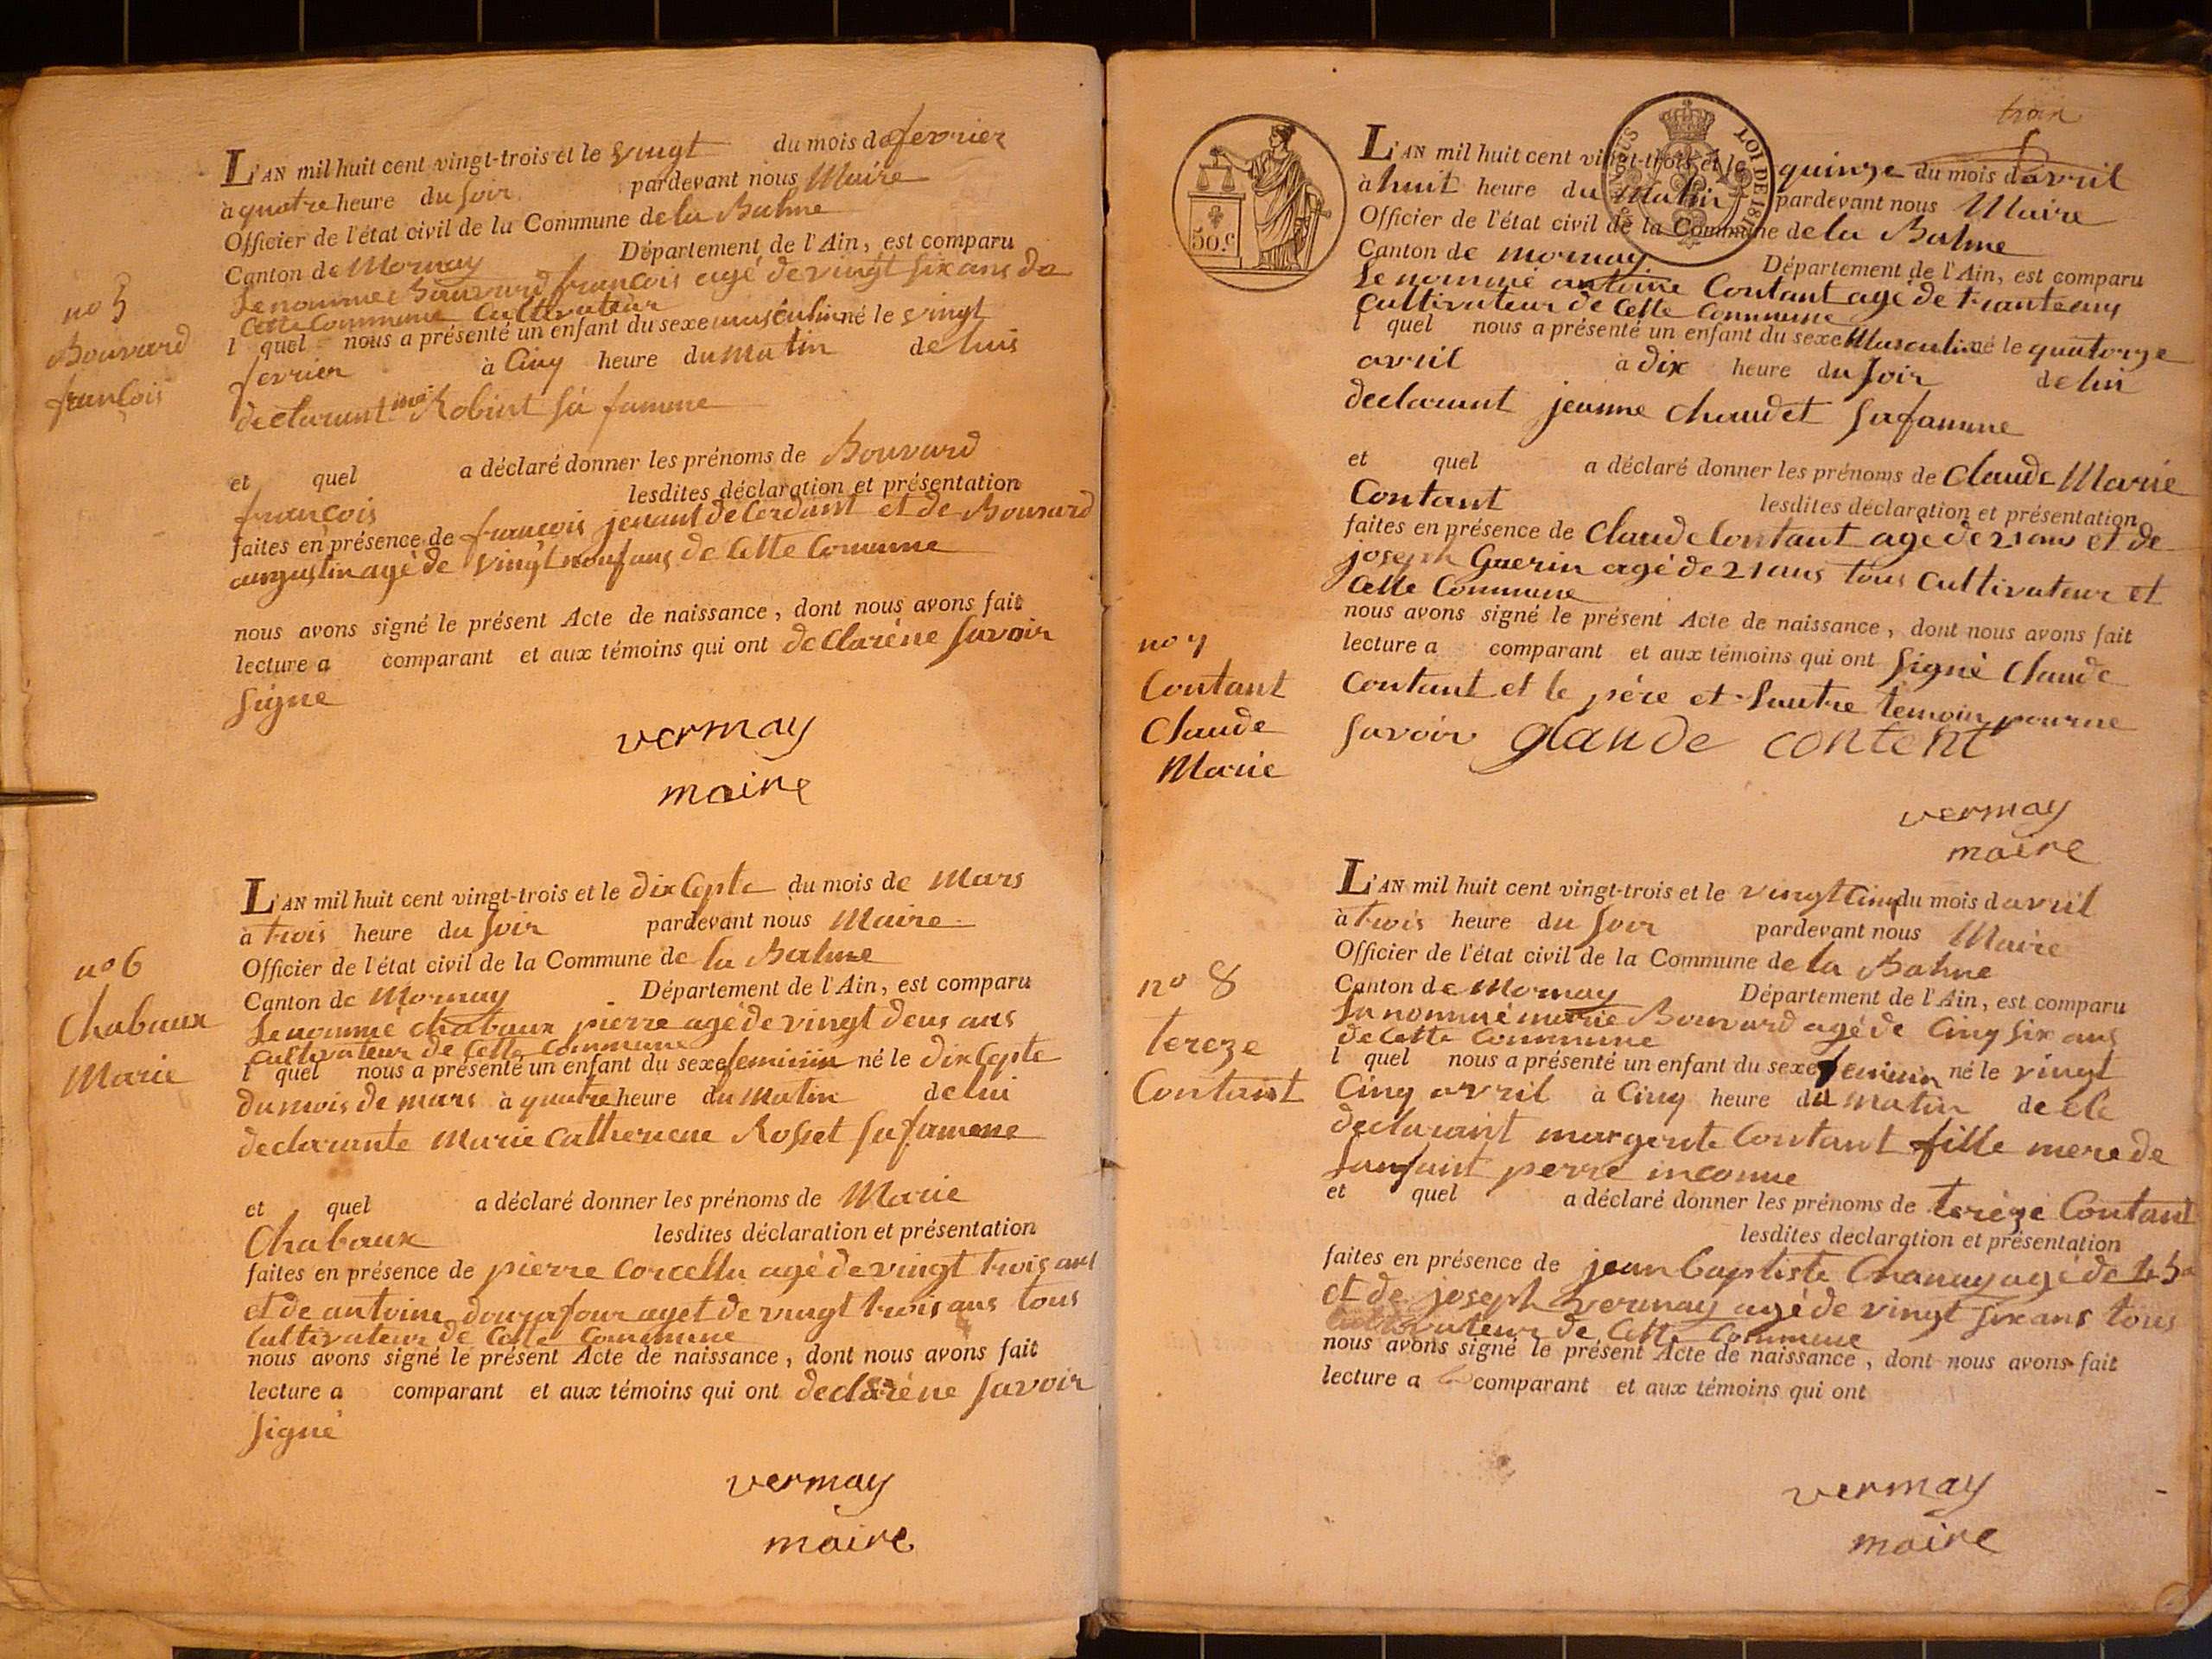 L'AN mil huit cent vingt-trois et le vingt du mois de fevrier
à quatre heure du soir pardevant nous Maire
Officier de l'état civil de la Commune de la Balme
Canton de Mornay Département de l'Ain, est comparu
Le nomme Bouvard françois agé de vingt six ans de
cette Commune Cultivateur
l quel nous a présenté un enfant du sexe masculin né le vingt
fevrier à Cinq heure du matin de luis
declarant Robint sa famme
no 5
Bouvard
françois
et quel a déclaré donner les prénoms de Bouvard
françois lesdites déclaration et présentation
faites en présence de françois jenant de Cerdont et de Bouvard
augustin agé de vingt neuf ans de Cette Comune
nous avons signé le présent Acte de naissance, dont nous avons fait
lecture a comparant et aux témoins qui ont declaréne savoir
signe
vermay
maire
L'AN mil huit cent vingt-trois et le dix Cepte du mois de Mars
à trois heure du soir pardevant nous Maire
Officier de l'état civil de la Commune de la Balme
Canton de Mornay Département de l'Ain, est comparu
Le nommé chabaux pierre agé de vingt deus ans
Cultivateur de Cette Commune
l quel nous a présenté un enfant du sexe feminin né le dix Cepte
du mois de mars à quatre heure du Matin de lui
declarante Marie Catheriene Rosset sa famene
no 6
Chabaux
Marie
et quel a déclaré donner les prénoms de Marie
Chabaux lesdites déclaration et présentation
faites en présence de pierre Corcellu agé de vingt trois ans
et de antoine dourafour aget de vingt trois ans tous
Cultivateur de Cette Commune
nous avons signé le présent Acte de naissance, dont nous avons fait
lecture a comparant et aux témoins qui ont declaréne savoir
signé
vermay
maire
50.c
LOI DE 181
L'AN mil huit cent vingt-trois et le quinze du mois d'avril
à huit heure du Matin pardevant nous Maire
Officier de l'état civil de la Commune de la Balme
Canton de mornay Département de l'Ain, est comparu
Le nommé antoine Contant agé de trante ans
Cultivateur de Cette Commune
l quel nous a présenté un enfant du sexe Masculin né le quatorze
avril à dix heure du soir de lui
declarant jeanne chaudet sa famme
et quel a déclaré donner les prénoms de Claude Marie
Contant lesdites déclaration et présentation
faites en présence de Claude Contant agé de 21 ans et de
joseph Guerin agé de 21 ans tous Cultivateur et
Cette Commune
nous avons signé le présent Acte de naissance, dont nous avons fait
lecture a comparant et aux témoins qui ont signé Claude
Contant et le père et lautre temoin pour ne
savoir glaude content
no 7
Contant
Claude
Marie
vermay
maire
L'AN mil huit cent vingt-trois et le vingt Cinq du mois d avril
à trois heure du soir pardevant nous Maire
Officier de l'état civil de la Commune de la Balme
Canton de Mornay Département de l'Ain, est comparu
La nommé marie Bouvard agé de Cinq six ans
de Cette Commune
l quel nous a présenté un enfant du sexe feminin né le vingt
Cinq avril à Cinq heure du matin de ele
declarant margerite Contant fille mere de
lanfant perre inconue
no 8
tereze
Contant
et quel a déclaré donner les prénoms de terèze Contant
lesdites déclaration et présentation
faites en présence de jean Captiste Chanay agé de 45
et de joseph vermay agé de vingt six ans tous
Cultivateur de Cette Commune
nous avons signé le présent Acte de naissance, dont nous avons fait
lecture a comparant et aux témoins qui ont
vermay
maire